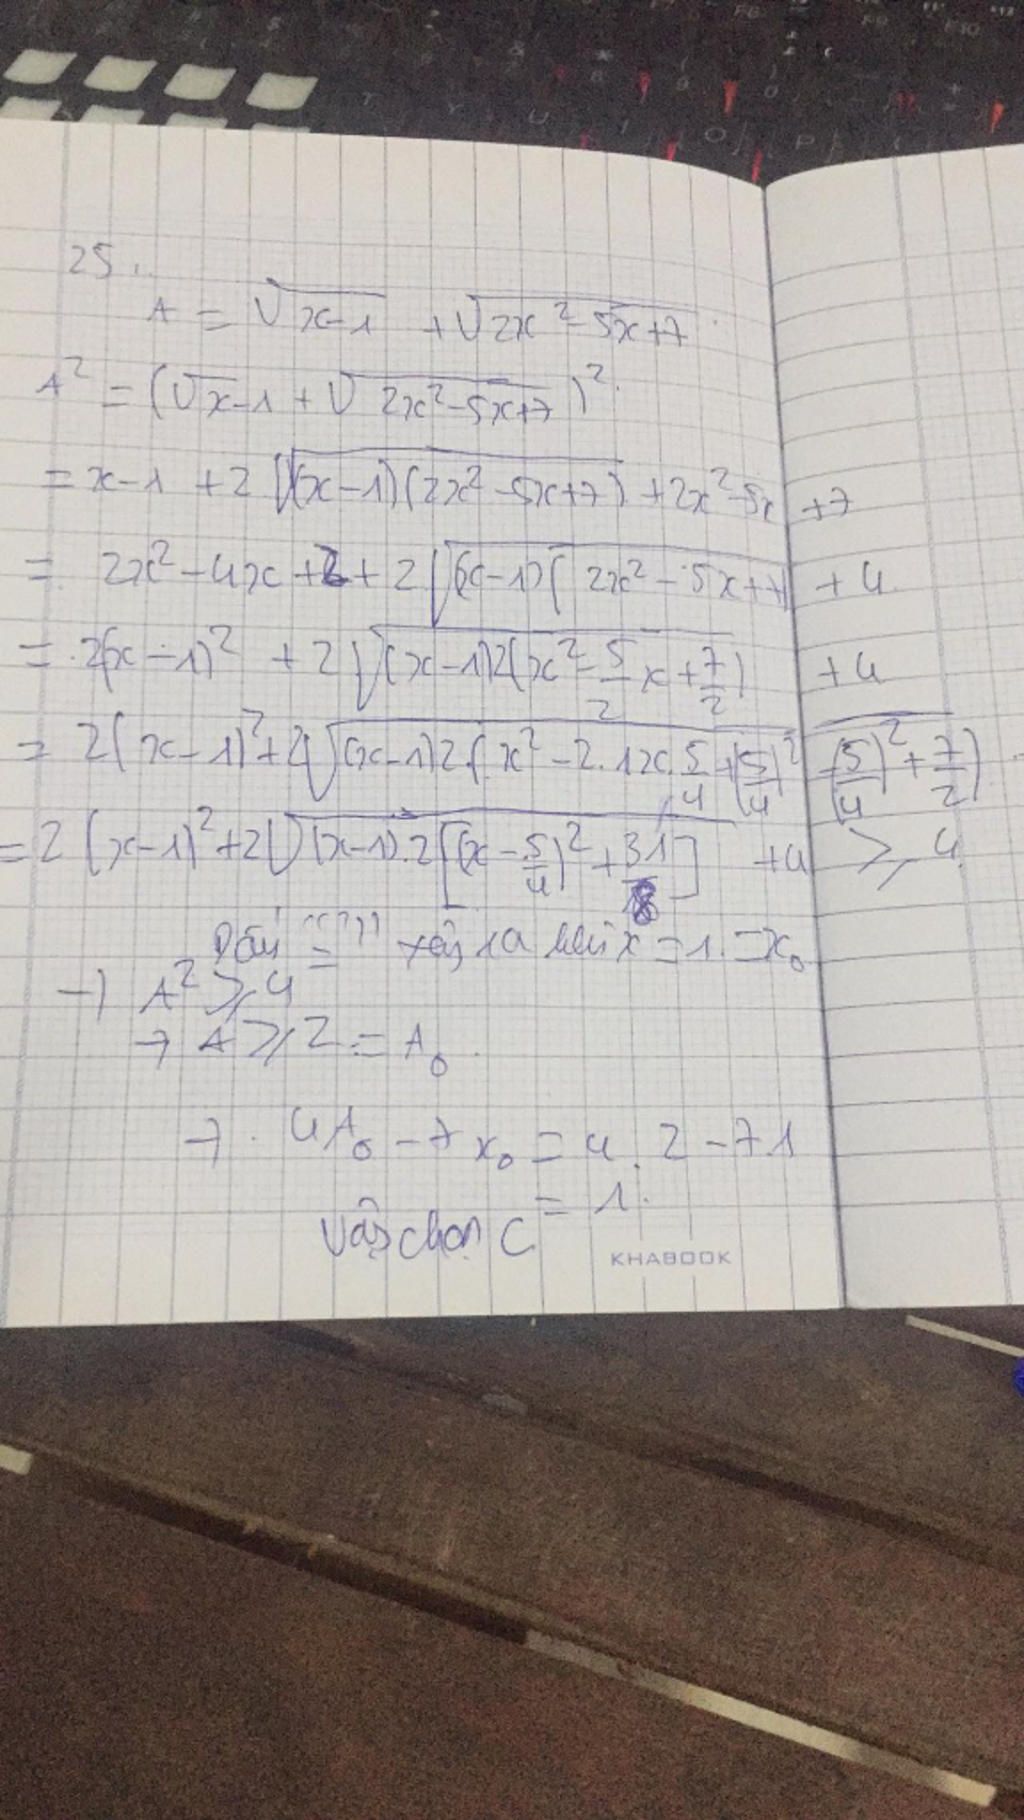 25.
A = √(x-1) + √(2x²-5x+7)
A² = (√x-1 + √(2x²-5x+7))²
= x-1 + 2√((x-1)(2x²-5x+7)) + 2x²-5x +7
= 2x²-4x+2+2√((x-1)(2x²-5x+7)) +4
= 2(x-1)² + 2√((x-1)2(x²-5/2x+7/2)) +4
= 2(x-1)²+2√((x-1)2.(x²-2.1x.5/4+(5/4)²-(5/4)²+7/2)
= 2(x-1)²+2√((x-1).2[(x-5/4)²+31/18]) +4 ≥ 4
Dấu "=" xảy ra khi x=1.=x₀
→ A² ≥ 4
→ A ≥ 2 = A₀.
→. 4A₀ - 7x₀ = 4.2-7.1
= 1.
Vậy chọn C
KHABOOK